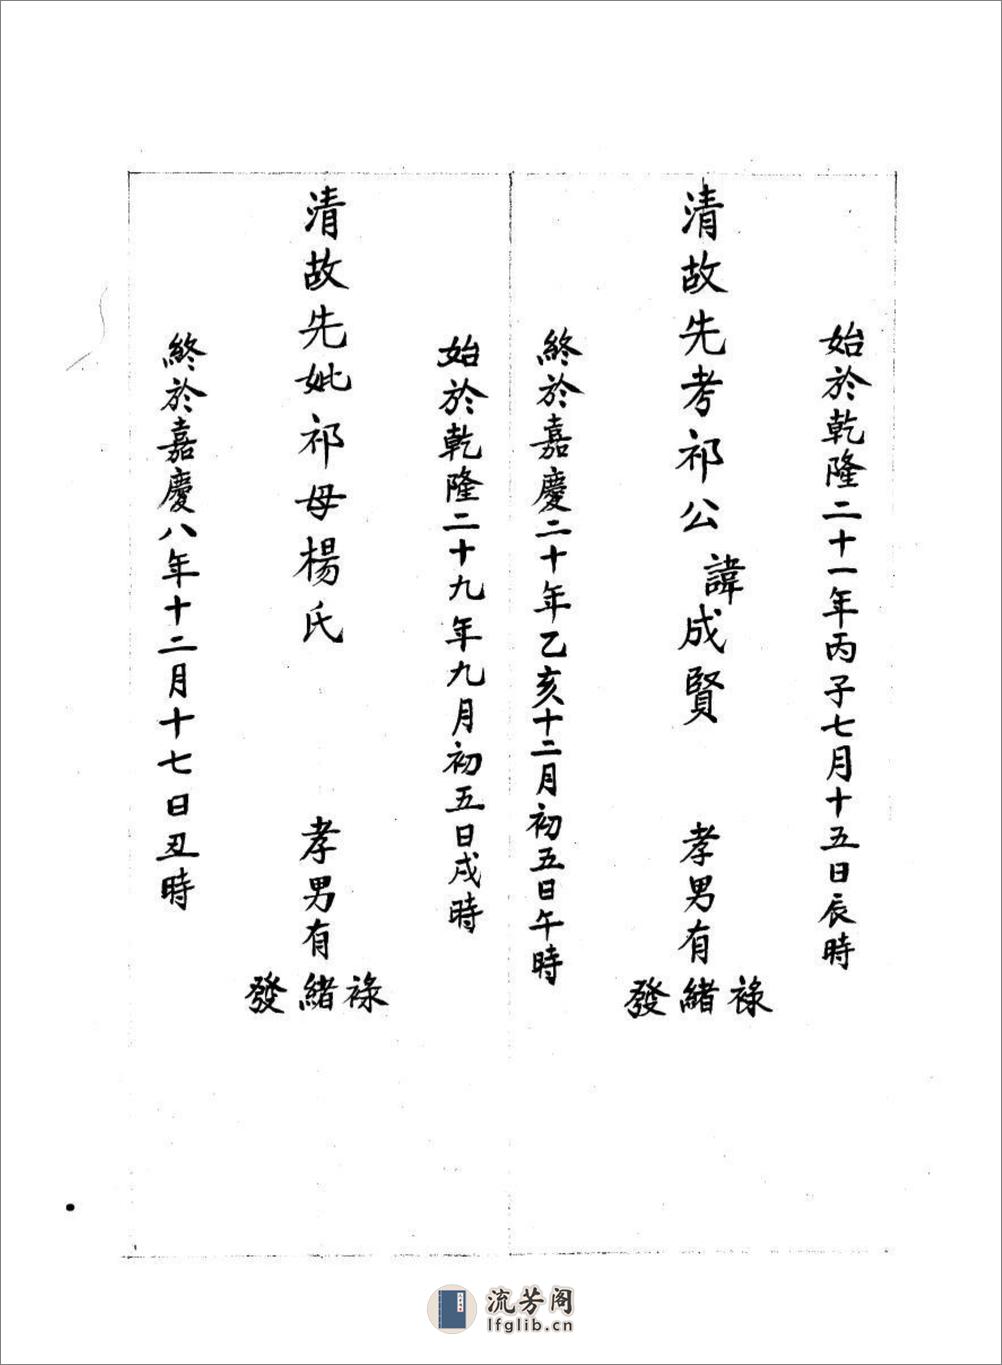 始於乾隆二十一年丙子七月十五日辰時
清故先考祁公諱成賢
孝男有
祿緒發
終於嘉慶二十年乙亥十二月初五日午時
始於乾隆二十九年九月初五日戌時
清故先妣祁母楊氏
孝男有
祿緒發
終於嘉慶八年十二月十七日丑時
流芳阁
lfglib.cn